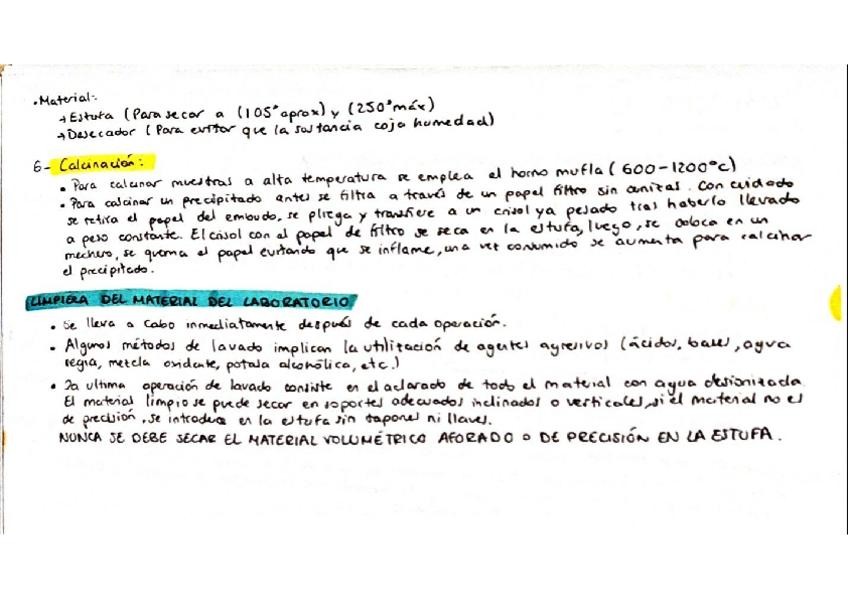 • Material:
→ Estufa (Para secar a (105° aprox) y (250° máx)
→ Desecador (Para evitar que la sustancia coja humedad)
6- Calcinación:
• Para calcinar muestras a alta temperatura se emplea el horno mufla (600-1200°C)
• Para calcinar un precipitado antes se filtra a través de un papel filtro sin cenizas. Con cuidado
se retira el papel del embudo, se pliega y transfiere a un crisol ya pesado tras haberlo llevado
a peso constante. El crisol con el papel de filtro se seca en la estufa, luego, se coloca en un
mechero, se quema el papel evitando que se inflame, una vez consumido se aumenta para calcinar
el precipitado.
LIMPIEZA DEL MATERIAL DEL LABORATORIO
• Se lleva a cabo inmediatamente después de cada operación.
• Algunos métodos de lavado implican la utilización de agentes agresivos (ácidos, bases, agua
regia, mezcla oxidante, potasa alcohólica, etc.)
• La ultima operación de lavado consiste en el aclarado de todo el material con agua desionizada.
El material limpio se puede secar en soportes adecuados inclinados o verticales, si el material no es
de precisión, se introduce en la estufa sin tapones ni llaves.
NUNCA SE DEBE SECAR EL MATERIAL VOLUMÉTRICO AFORADO O DE PRECISIÓN EN LA ESTUFA.